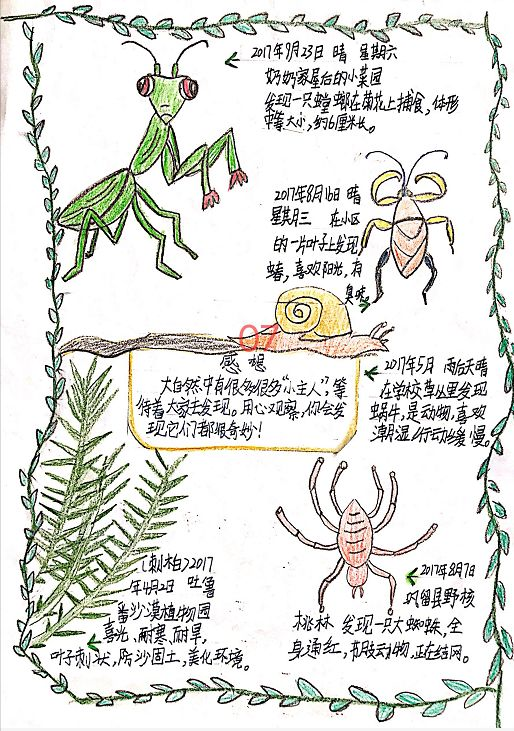 2017年9月23日 晴 星期六
奶奶家屋后的小菜园
发现一只螳螂在菊花上捕食,体形
中等大小,约6厘米长。
2017年8月16日 晴
星期三 在小区
的一片叶子上发现
蝽,喜欢阳光,有
臭味。
07
感想
大自然中有很多很多“小主人”,等
待着大家去发现。用心观察,你会发
现它们都很奇妙!
2017年5月 雨后天晴
在学校草丛里发现
蜗牛,是动物,喜欢
潮湿,行动缓慢。
(刺柏)2017
年4月2日 吐鲁
番沙漠植物园
喜光、耐寒、耐旱,
叶子刺状,防沙固土,美化环境。
2017年8月7日
巩留县野核
桃林 发现一只大蜘蛛,全
身通红,节肢动物,正在结网。